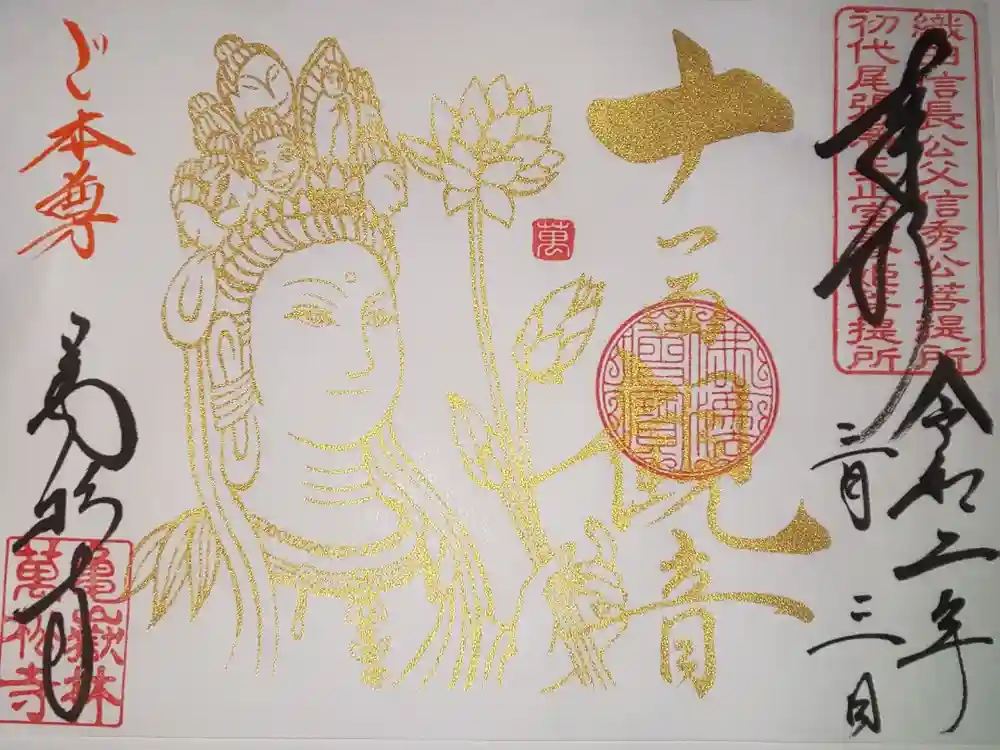 織田信長公父信秀公菩提所
初代尾張藩主正室春姫菩提所
奉拝
令和二年
二月
三日
十一面観音
佛法僧寶
萬
ご本尊
萬松寺
亀嶽林
萬松寺